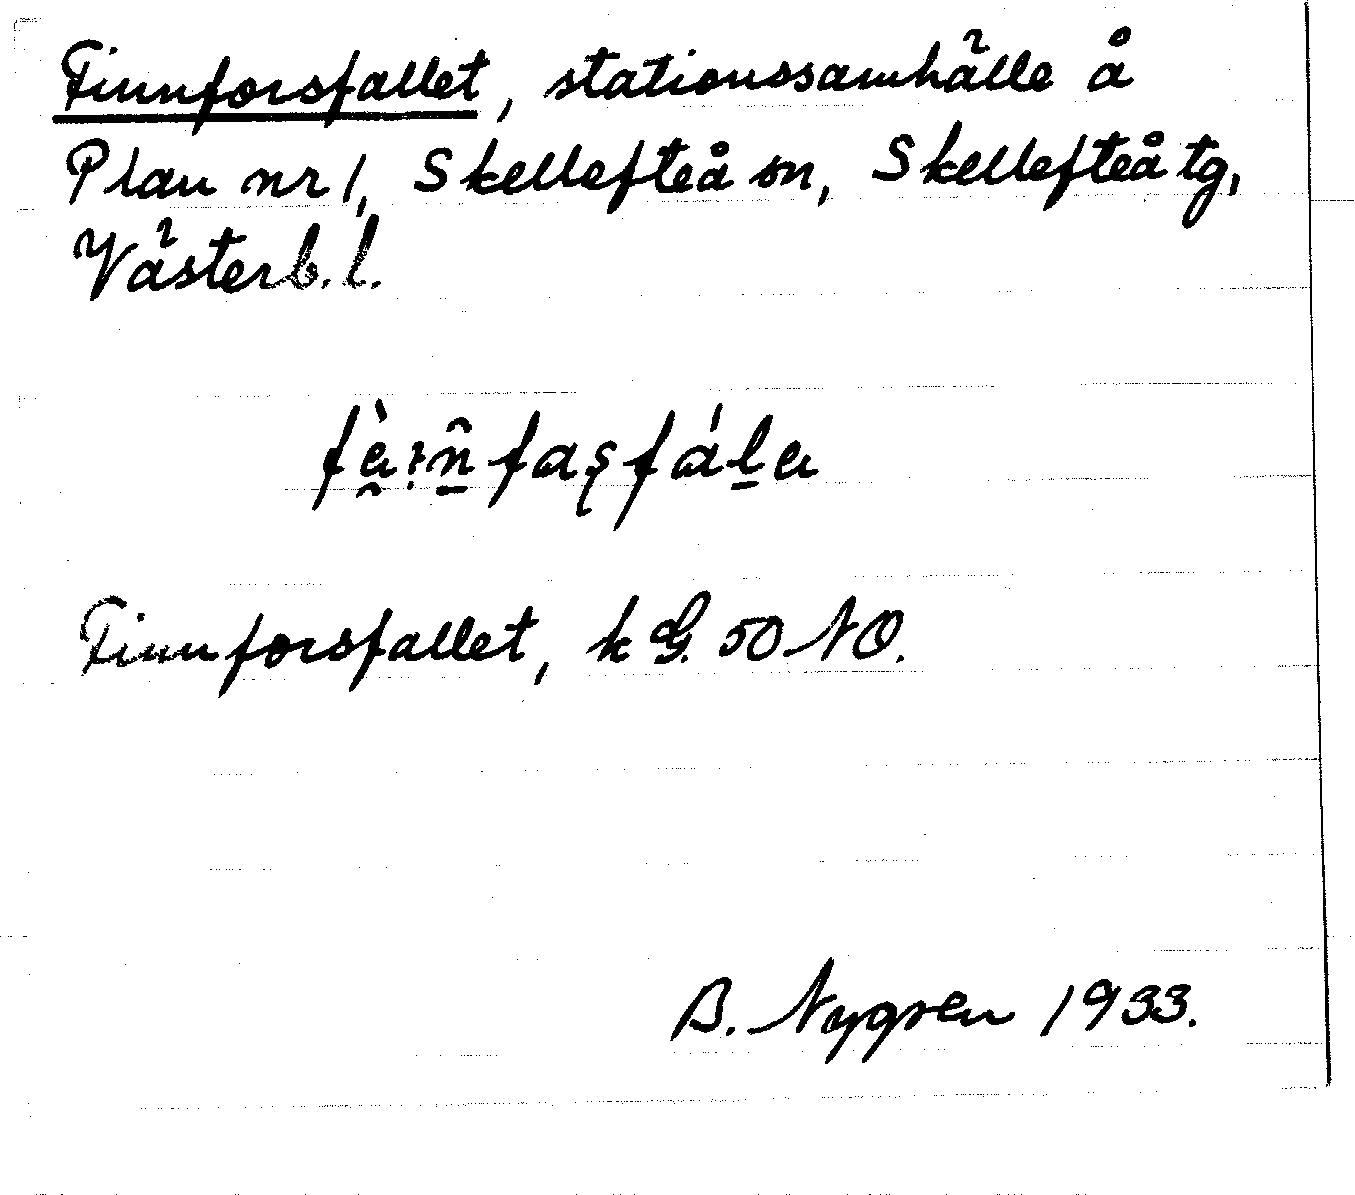 Finnforsfallet, stationssamhälle å
Plan nr 1, Skellefteå sn, Skellefteå tg,
Västerb. l.
Finnforsfallet, k G. 50 NO.
B. Nygren 1933.